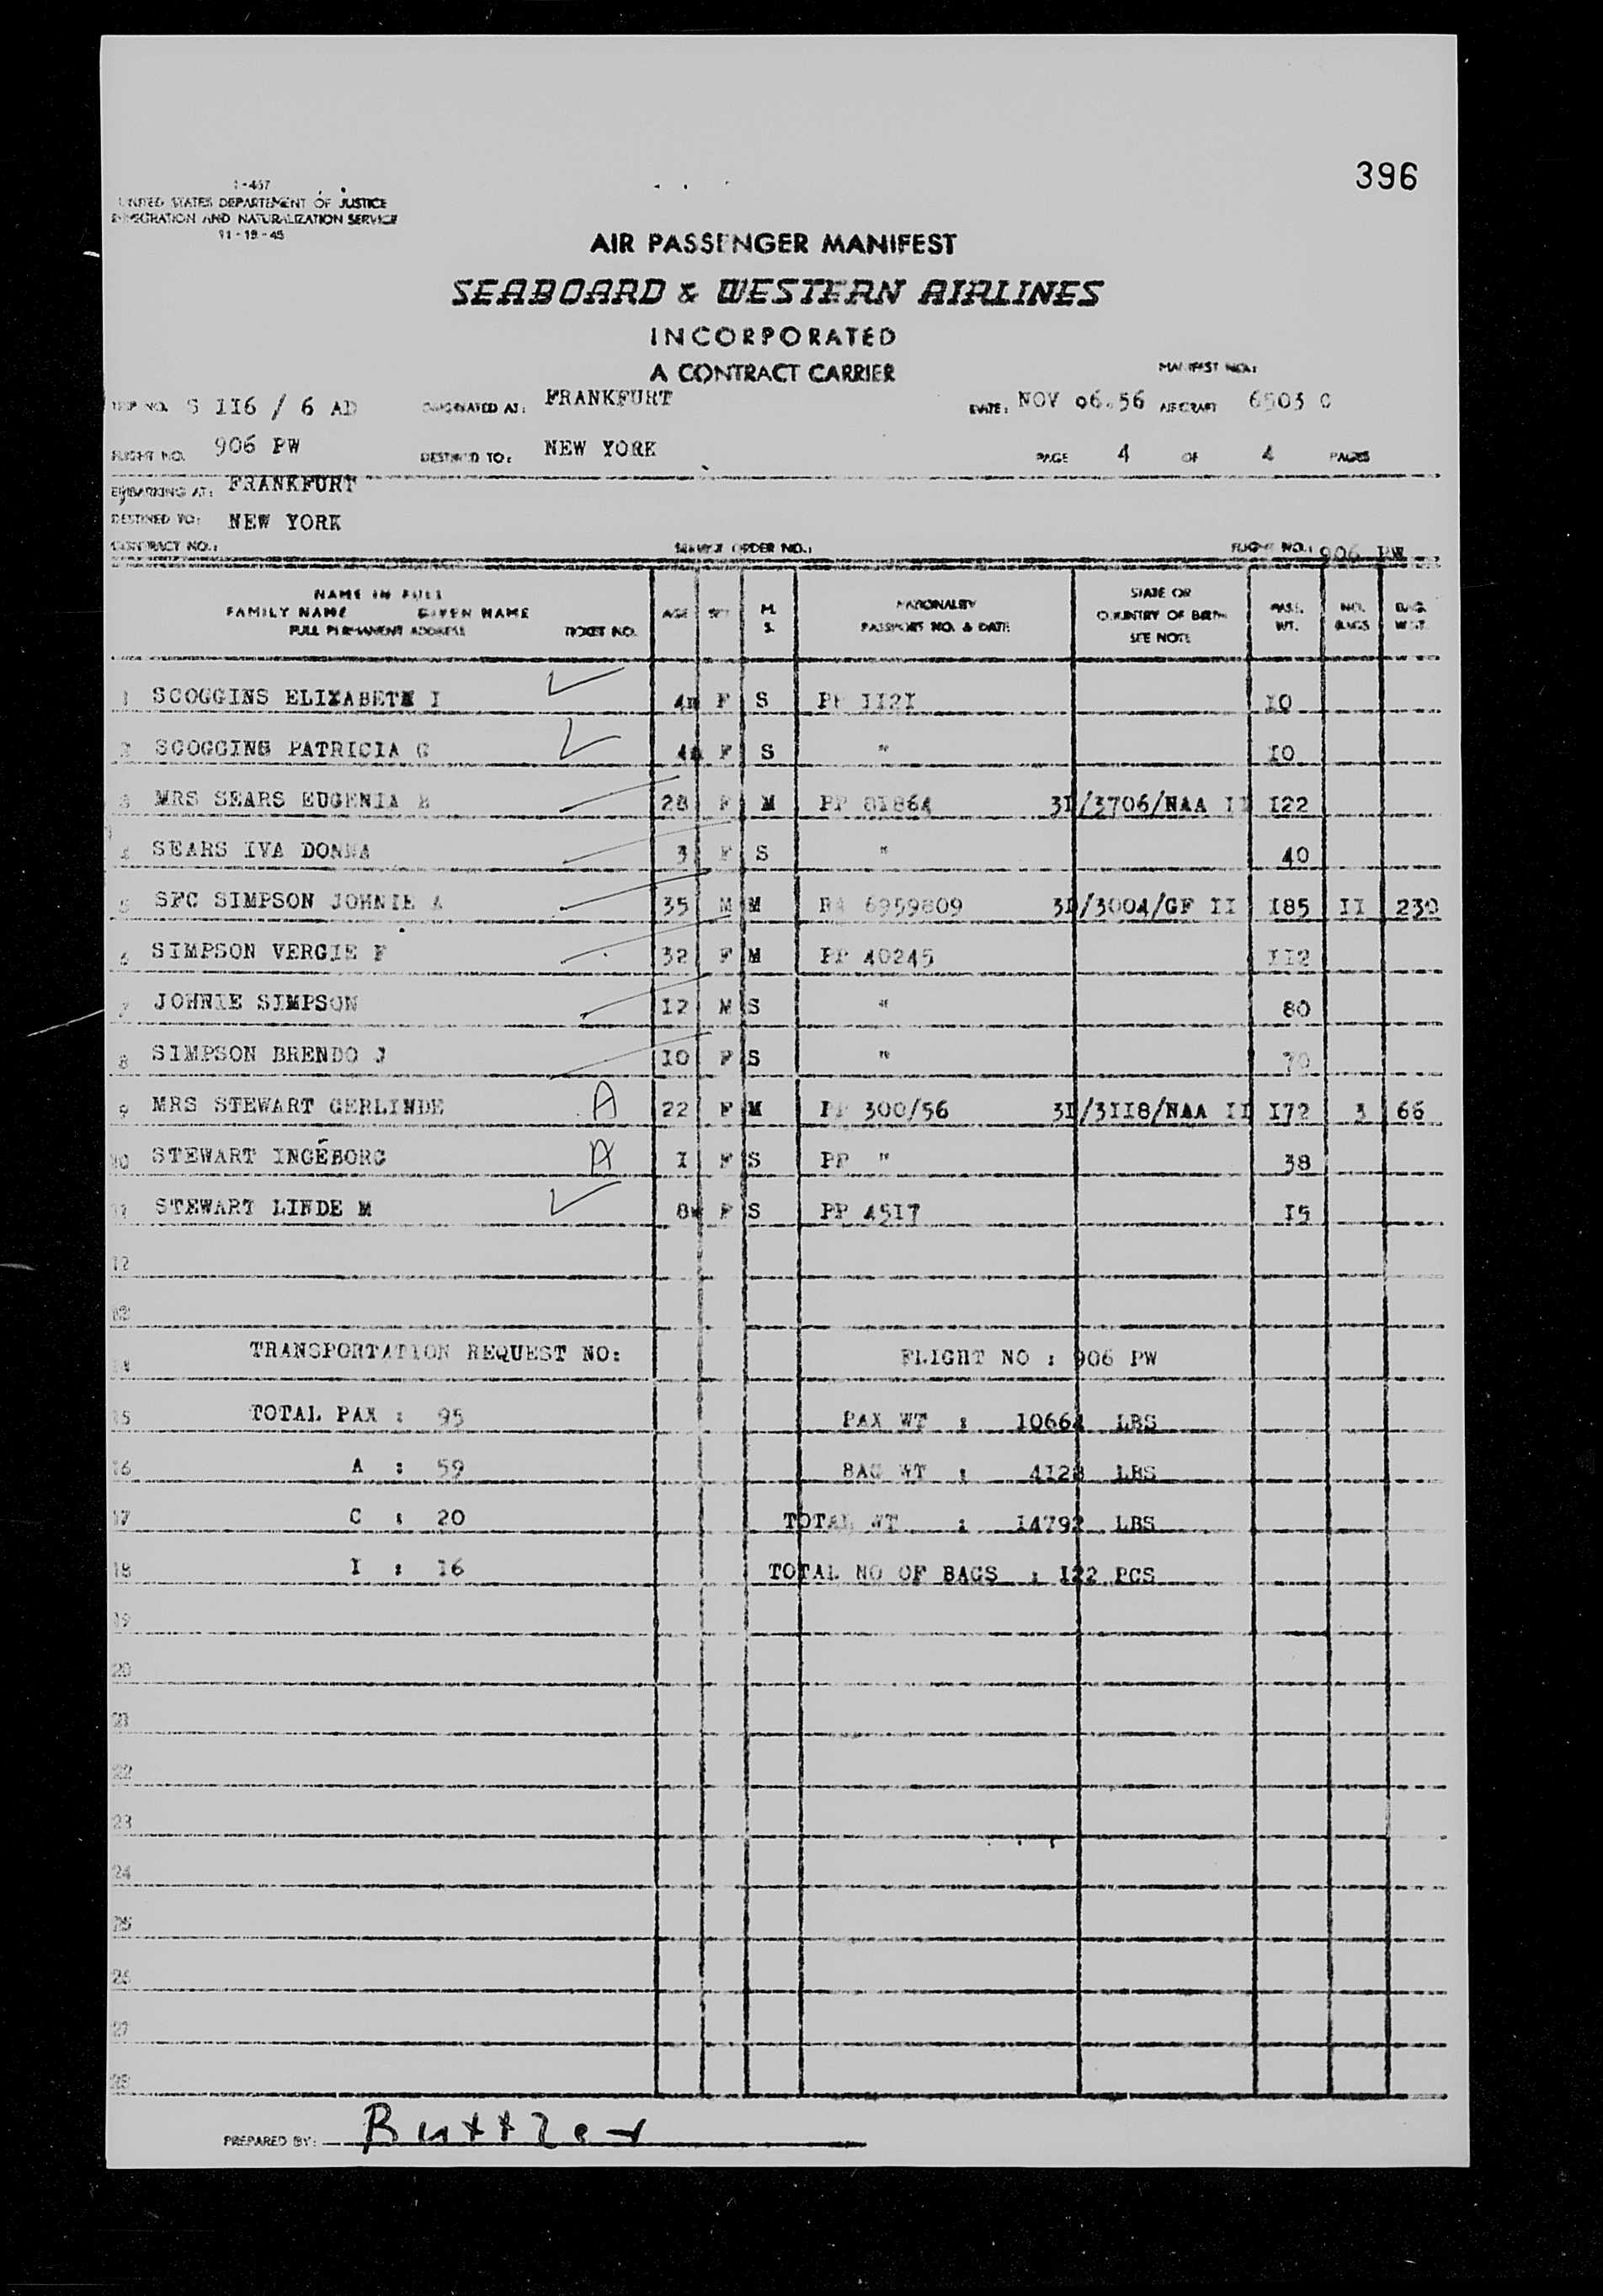 396
I-457
UNITED STATES DEPARTEMENT OF JUSTICE
IMMIGRATION AND NATURALIZATION SERVICE
11-15-45
AIR PASSENGER MANIFEST
SEABOARD & WESTERN AIRLINES
INCORPORATED
A CONTRACT CARRIER
MANIFEST NO.:
TRIP NO. S II6 / 6 AD ORIGINATED AT: FRANKFURT DATE: NOV 06.56 AIRCRAFT 6503 C
FLIGHT NO. 906 PW DESTINED TO: NEW YORK PAGE 4 OF 4 PAGES
EMBARKING AT: FRANKFURT
DESTINED TO: NEW YORK
CONTRACT NO.: SERVICE ORDER NO.: FLIGHT NO.: 906 PW
NAME IN FULL
FAMILY NAME GIVEN NAME
FULL PERMANENT ADDRESS TICKET NO. AGE SEX M. S. NATIONALITY PASSPORT NO. & DATE STATE OR COUNTRY OF BIRTH SEE NOTE PASS. WT. NO. BAGS BAG. WGT.
1 SCOGGINS ELIZABETH I 4m F S PP II2I IO
2 SCOGGINS PATRICIA G 4m F S " IO
3 MRS SEARS EUGENIA B 28 F M PP 8I864 3D/3706/NAA II I22
4 SEARS IVA DONNA 3 F S " 40
5 SFC SIMPSON JOHNIE A 35 M M RA 6959809 3D/3004/GF II I85 II 230
6 SIMPSON VERGIE F 32 F M PP 40245 II2
7 JOHNIE SIMPSON I2 M S " 80
8 SIMPSON BRENDO J IO F S " 70
9 MRS STEWART GERLINDE A 22 F M PP 300/56 3D/3II8/NAA II I72 3 66
10 STEWART INGEBORG A I F S PP " 38
11 STEWART LINDE M 8m F S PP 45I7 I5
12
13
14 TRANSPORTATION REQUEST NO: FLIGHT NO : 906 PW
15 TOTAL PAX : 95 PAX WT : I0664 LBS
16 A : 59 BAG WT : 4I28 LBS
17 C : 20 TOTAL WT : I4792 LBS
18 I : I6 TOTAL NO OF BAGS : I22 PCS
19
20
21
22
23
24
25
26
27
28
PREPARED BY: Buttzer